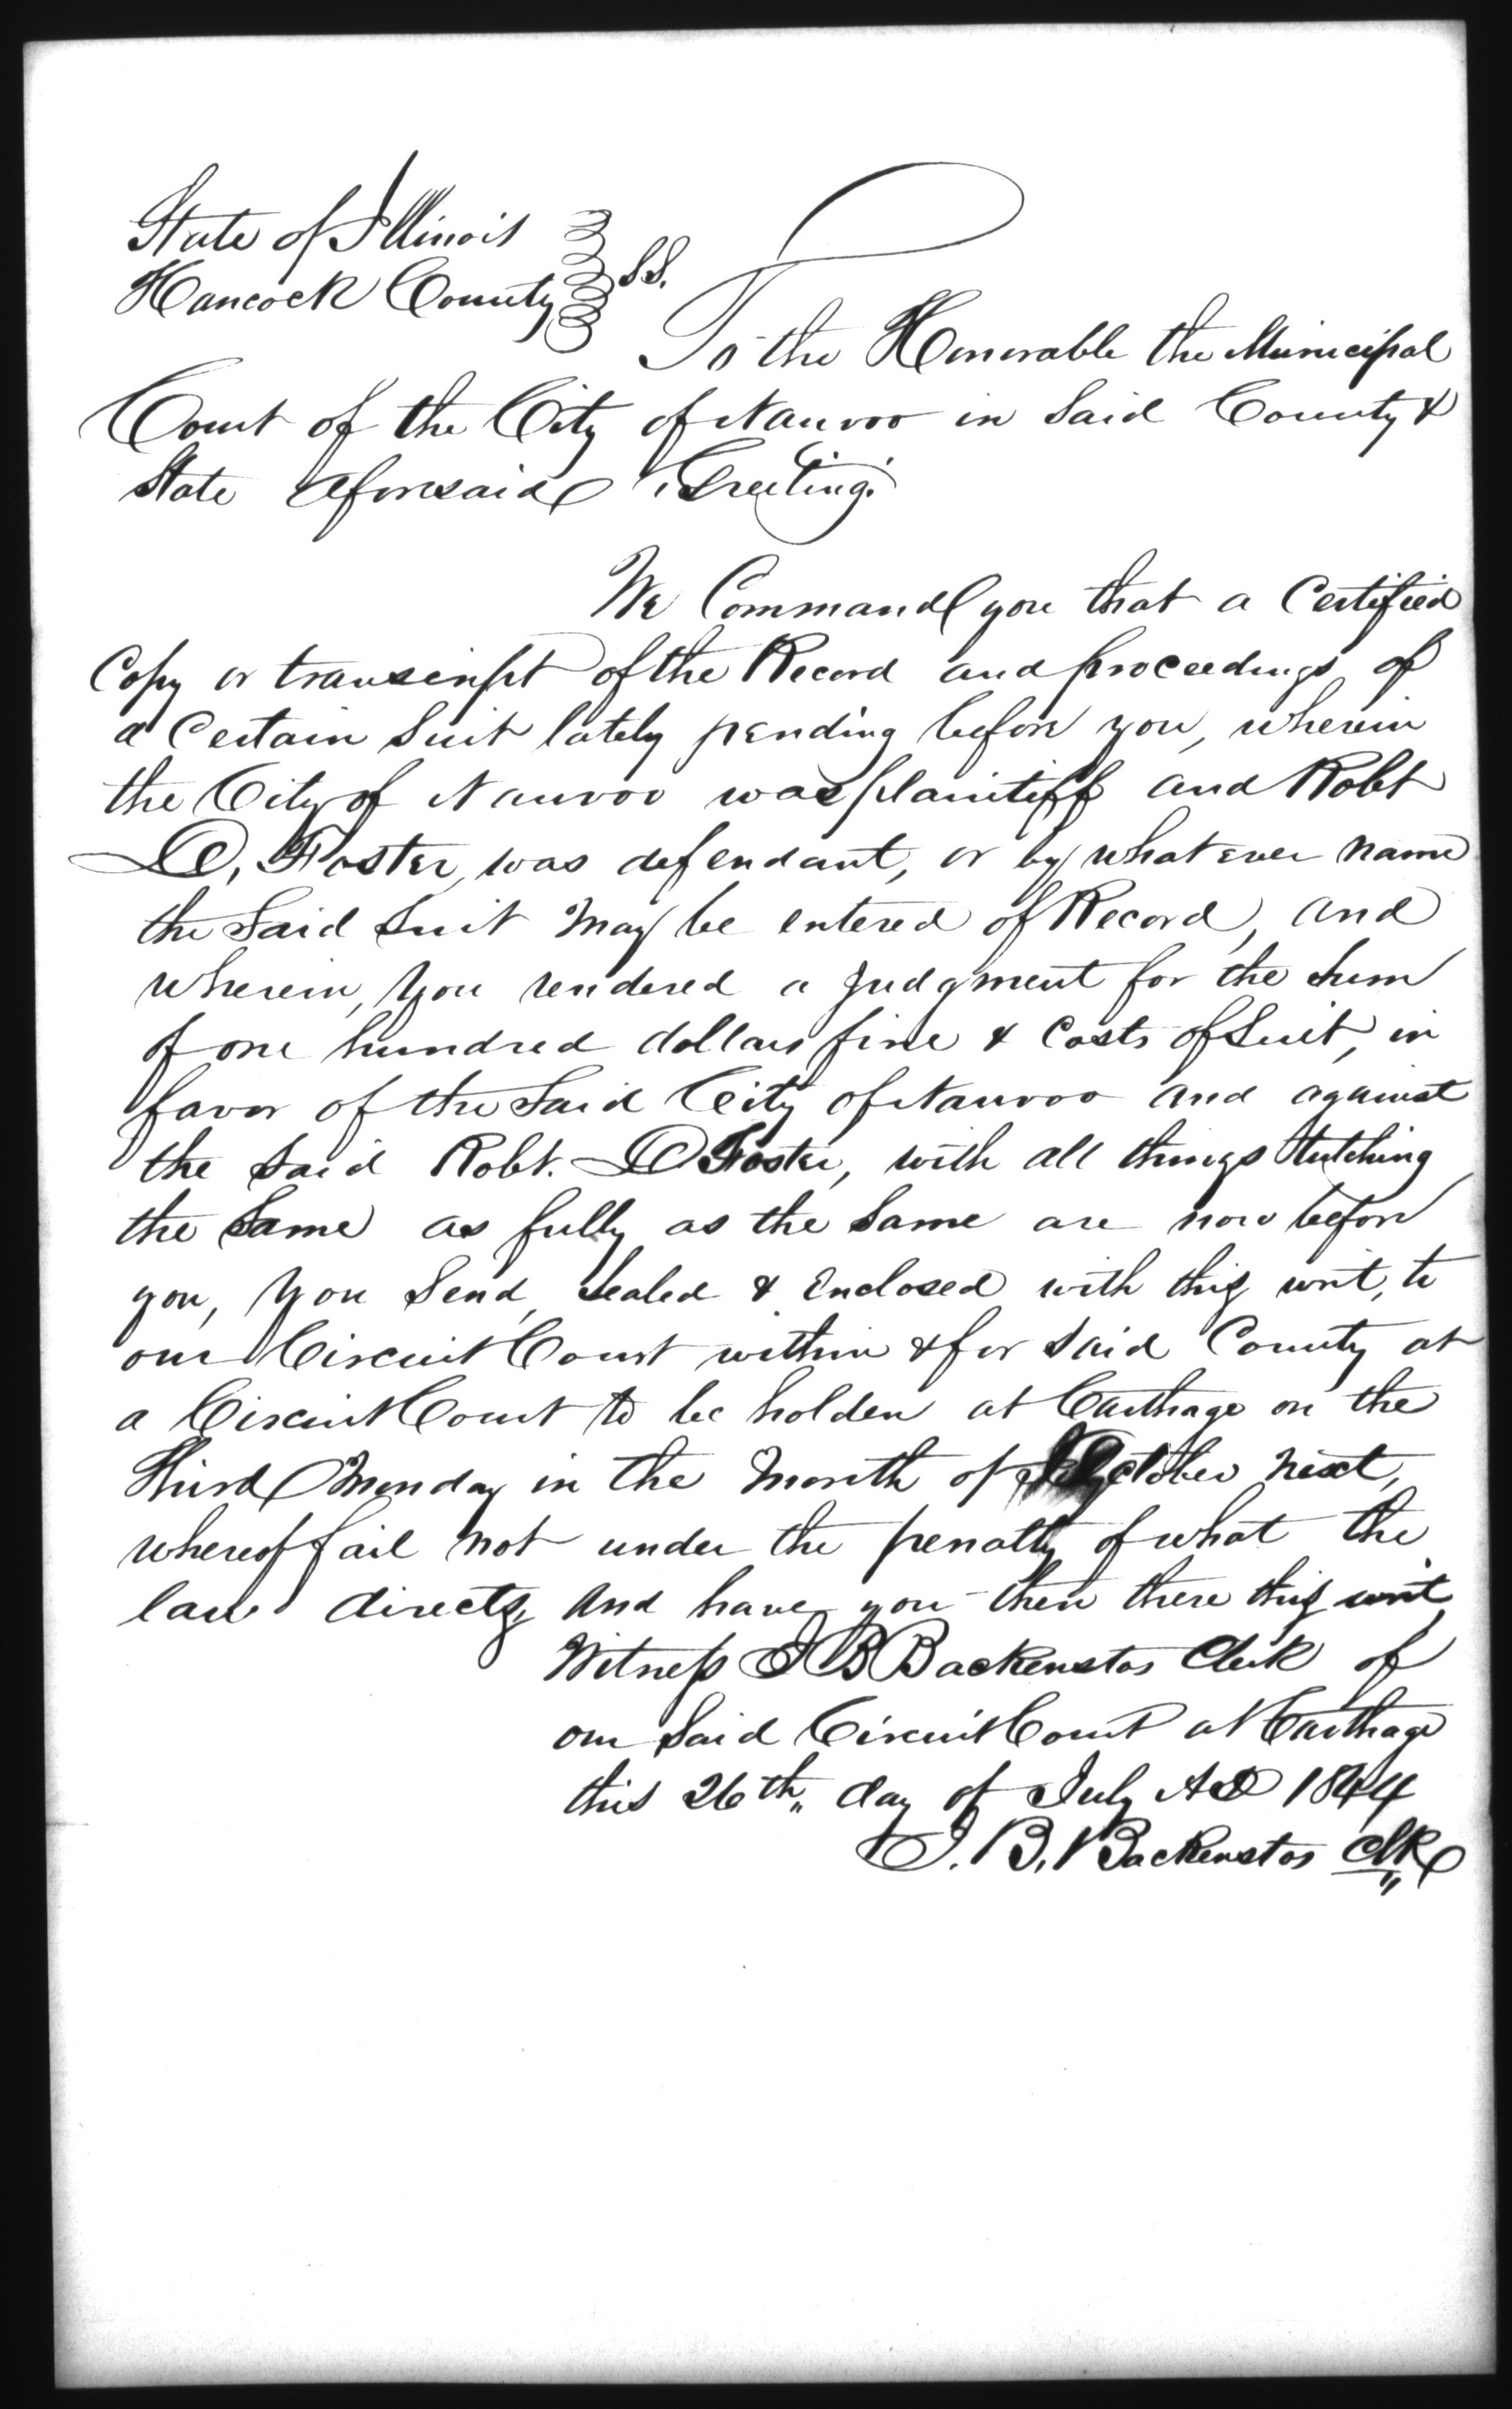 State of Illinois
Hancock County SS.
To the Honorable the Municipal
Court of the City of Nauvoo in Said County &
State aforesaid, Greeting:
We Command you that a Certified
Copy or transcript of the Record and proceedings of
a Certain Suit lately pending before you, wherein
the City of Nauvoo was plaintiff and Robt
D, Foster, was defendant, or by whatever name
the Said Suit May be entered of Record, and
wherein, you rendered a judgment for the sum
of one hundred dollars fine & Costs of Suit, in
favor of the Said City of Nauvoo and against
the Said Robt. D Foster, with all things tutching
the Same as fully as the Same are now before
you, you Send, Sealed & Enclosed with this writ, to
our Circuit Court within & for Said County at
a Circuit Court to be holden at Carthage on the
Third Monday in the Month of October next,
whereof fail not under the penalty of what the
law directs, and have you then there this writ
Witness J B Backenstos Clerk of
our Said Circuit Court at Carthage
this 26th day of July AD 1844
J. B. Backenstos Clk